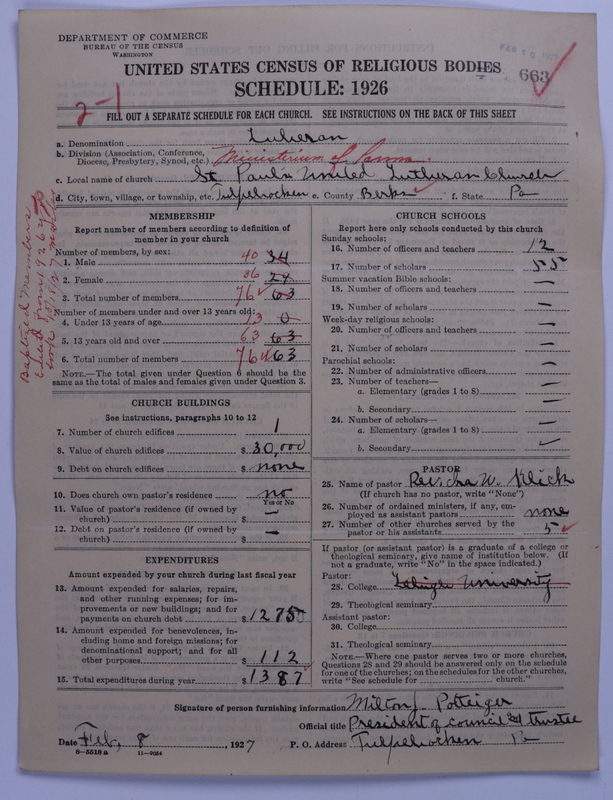 DEPARTMENT OF COMMERCE
BUREAU OF THE CENSUS
WASHINGTON
UNITED STATES CENSUS OF RELIGIOUS BODIES
663
SCHEDULE: 1926
2-1
FILL OUT A SEPARATE SCHEDULE FOR EACH CHURCH. SEE INSTRUCTIONS ON THE BACK OF THIS SHEET
a. Denomination Lutheran
b. Division (Association, Conference, Diocese, Presbytery, Synod, etc.) Ministerium of Penna.
c. Local name of church St. Paul's United Lutheran Church
d. City, town, village, or township, etc. Tulpehocken e. County Berks f. State Pa
MEMBERSHIP
Report number of members according to definition of
member in your church
Number of members, by sex:
1. Male 40 34
2. Female 36 29
3. Total number of members 76 63
Number of members under and over 13 years old:
4. Under 13 years of age 13 0
5. 13 years old and over 63 63
6. Total number of members 76 63
NOTE.—The total given under Question 6 should be the
same as the total of males and females given under Question 3.
Baptized Members
CHURCH BUILDINGS
See instructions, paragraphs 10 to 12
7. Number of church edifices 1
8. Value of church edifices $ 30,000
9. Debt on church edifices $ none
10. Does church own pastor's residence no
Yes or No
11. Value of pastor's residence (if owned by
church) $ —
12. Debt on pastor's residence (if owned by
church) $ —
EXPENDITURES
Amount expended by your church during last fiscal year
13. Amount expended for salaries, repairs,
and other running expenses; for im-
provements or new buildings; and for
payments on church debt $ 1275
14. Amount expended for benevolences, in-
cluding home and foreign missions; for
denominational support; and for all
other purposes $ 112
15. Total expenditures during year $ 1387
CHURCH SCHOOLS
Report here only schools conducted by this church
Sunday schools:
16. Number of officers and teachers 12
17. Number of scholars 55
Summer vacation Bible schools:
18. Number of officers and teachers —
19. Number of scholars —
Week-day religious schools:
20. Number of officers and teachers —
21. Number of scholars —
Parochial schools:
22. Number of administrative officers —
23. Number of teachers—
a. Elementary (grades 1 to 8) —
b. Secondary —
24. Number of scholars—
a. Elementary (grades 1 to 8) —
b. Secondary —
PASTOR
25. Name of pastor Rev. Ira W. Klick
(If church has no pastor, write "None")
26. Number of ordained ministers, if any, em-
ployed as assistant pastors none
27. Number of other churches served by the
pastor or his assistants 5
If pastor (or assistant pastor) is a graduate of a college or
theological seminary, give name of institution below. (If
not a graduate, write "No" in the space indicated.)
Pastor:
28. College Lehigh University
29. Theological seminary
Assistant pastor:
30. College
31. Theological seminary
NOTE.—Where one pastor serves two or more churches,
Questions 28 and 29 should be answered only on the schedule
for one of the churches; on the schedules for the other churches,
write "See schedule for church."
Signature of person furnishing information Milton J. Potteiger
Official title President of council and trustee
Date Feb. 8, 1927 P. O. Address Tulpehocken Pa
8—5518 a 11—9054